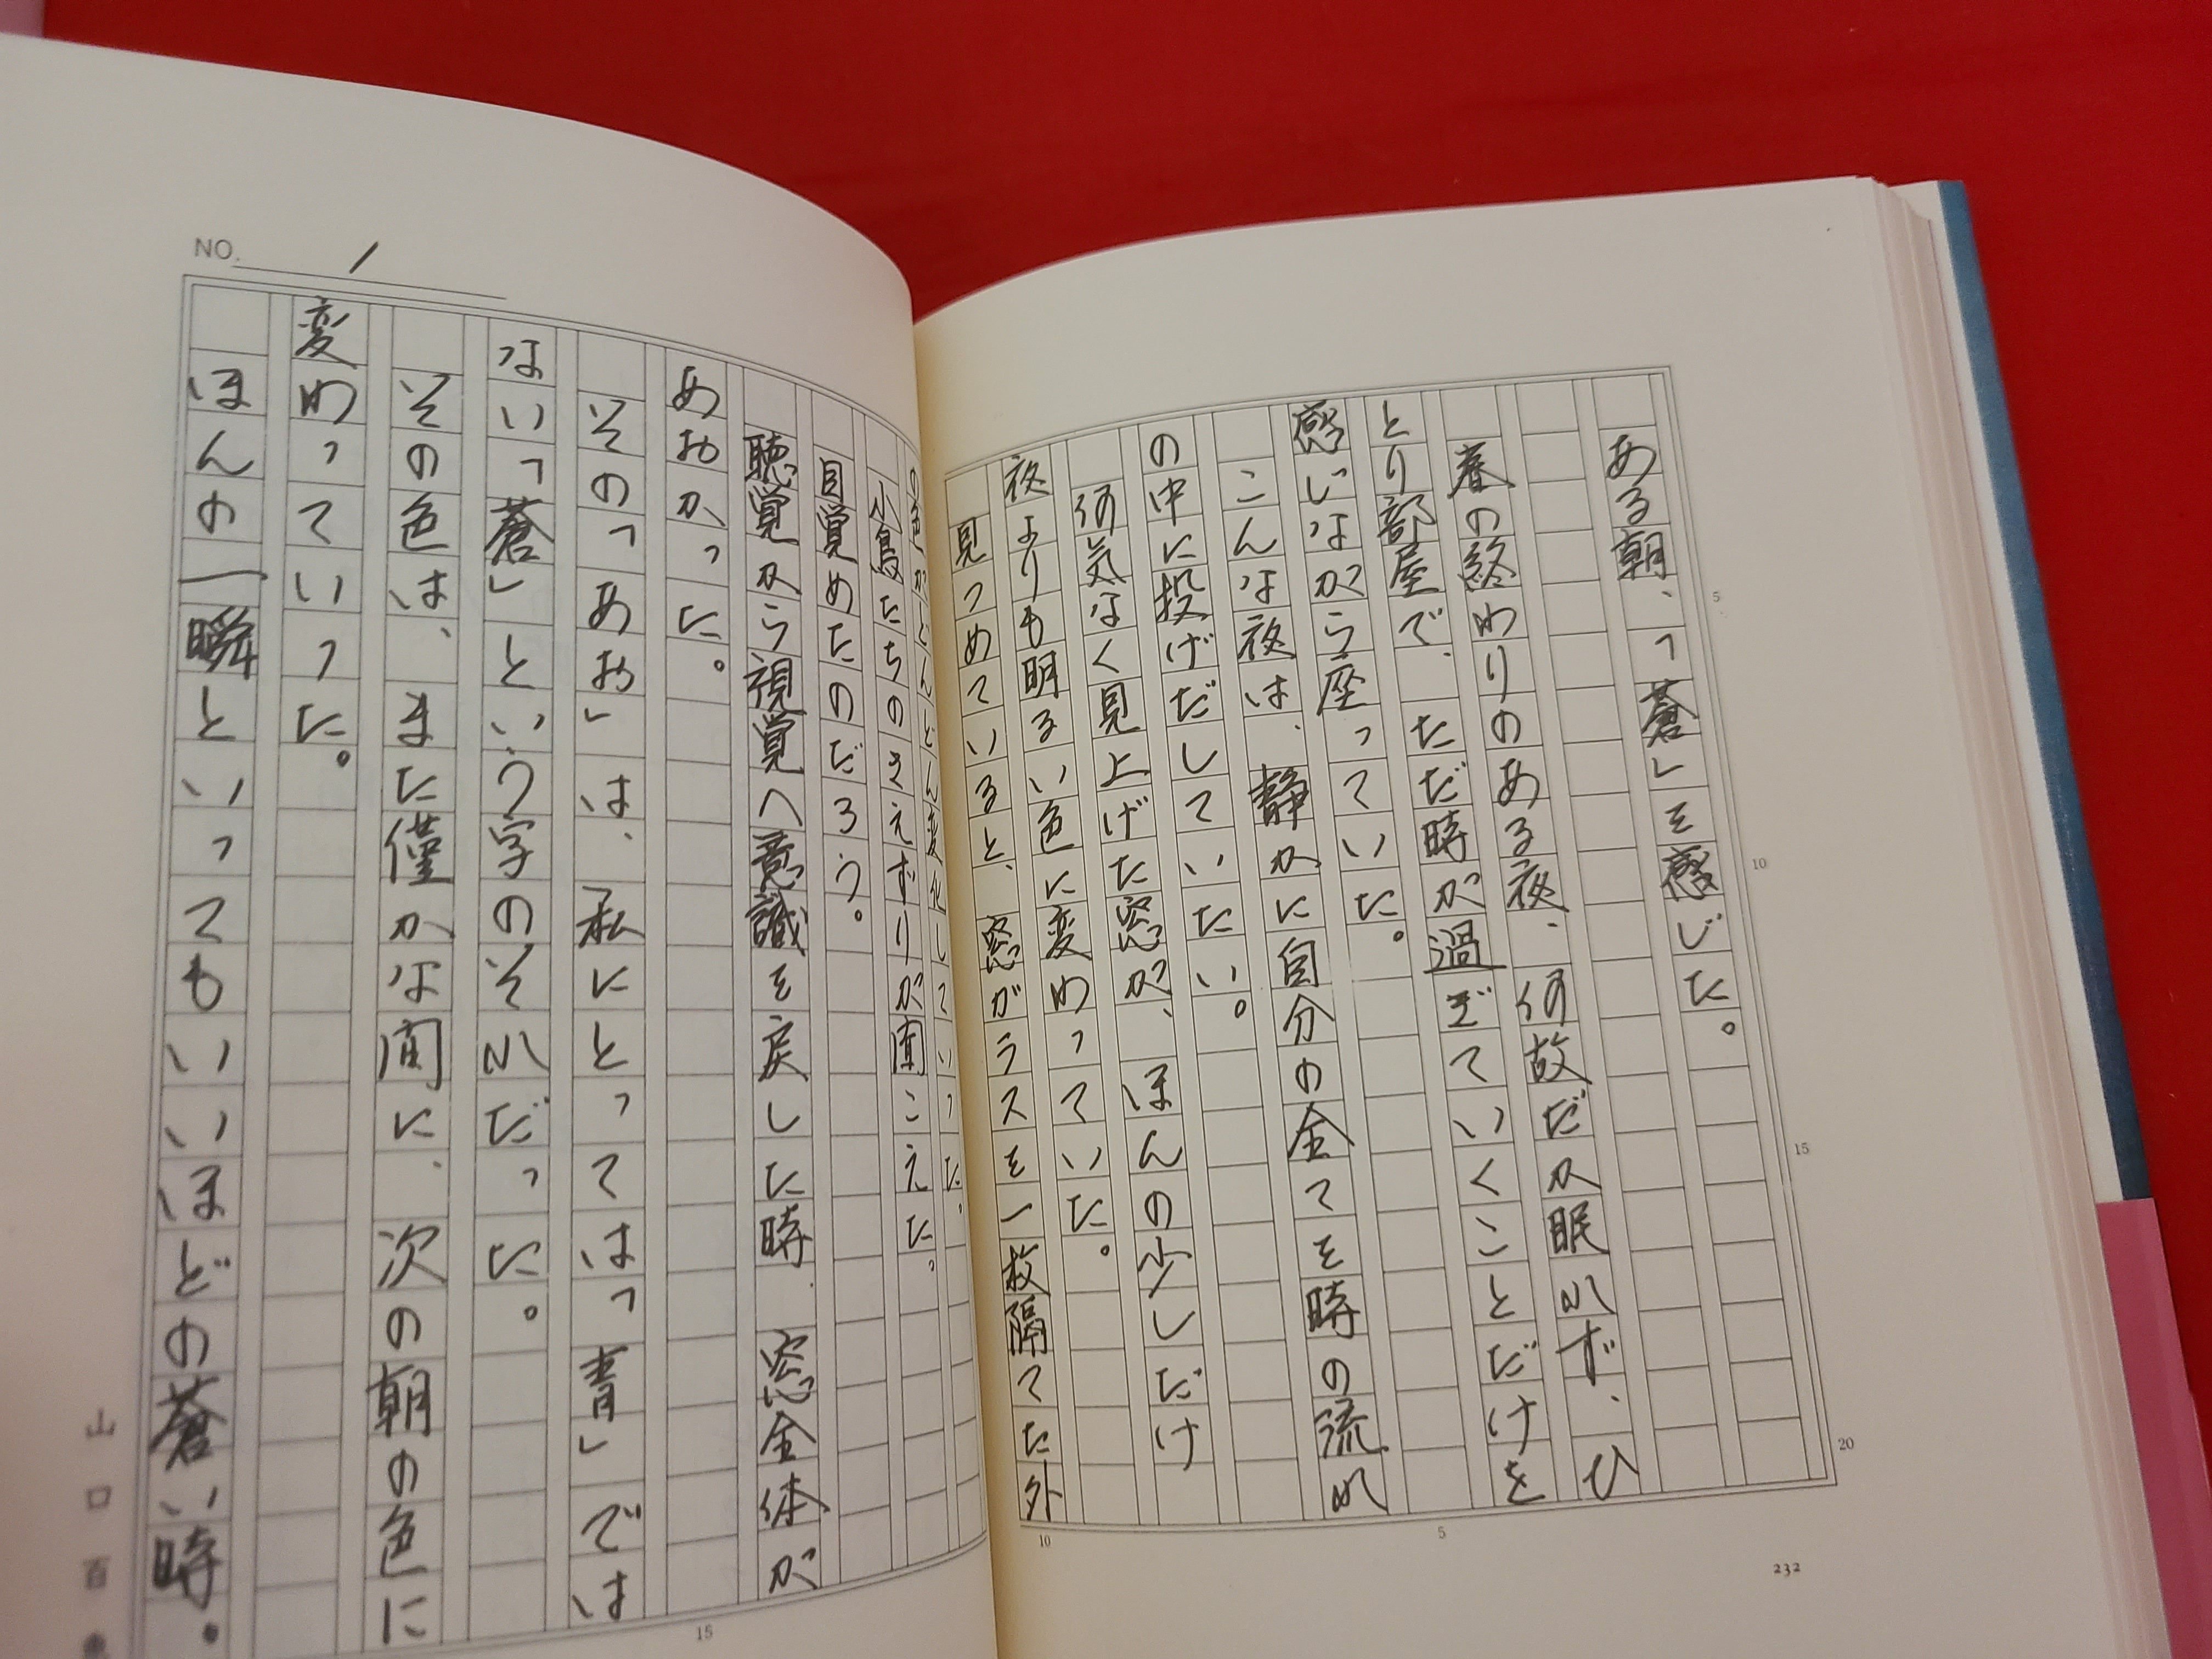 ある朝、「蒼」を感じた。
春の終わりのある夜、何故だか眠れず、ひ
とり部屋で、ただ時が過ぎていくことだけを
感じながら座っていた。
こんな夜は、静かに自分の全てを時の流れ
の中に投げだしていたい。
何気なく見上げた窓が、ほんの少しだけ
夜よりも明るい色に変わっていた。
見つめていると、窓ガラスを一枚隔てた外
の色がどんどん変化していった。
小鳥たちのさえずりが聞こえた。
目覚めたのだろう。
聴覚から視覚へ意識を戻した時、窓全体が
あおかった。
その「あお」は、私にとっては「青」では
ない「蒼」という字のそれだった。
その色は、また僅かな間に、次の朝の色に
変わっていった。
ほんの一瞬といってもいいほどの蒼い時。
NO. 1
山口百
5
10
15
20
5
10
15
232